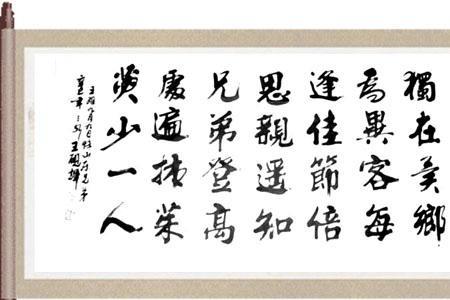 獨在異鄉
為異客每
逢佳節倍
思親遙知
兄弟登高
處遍插茱
萸少一人
王維九月九日憶山東兄弟